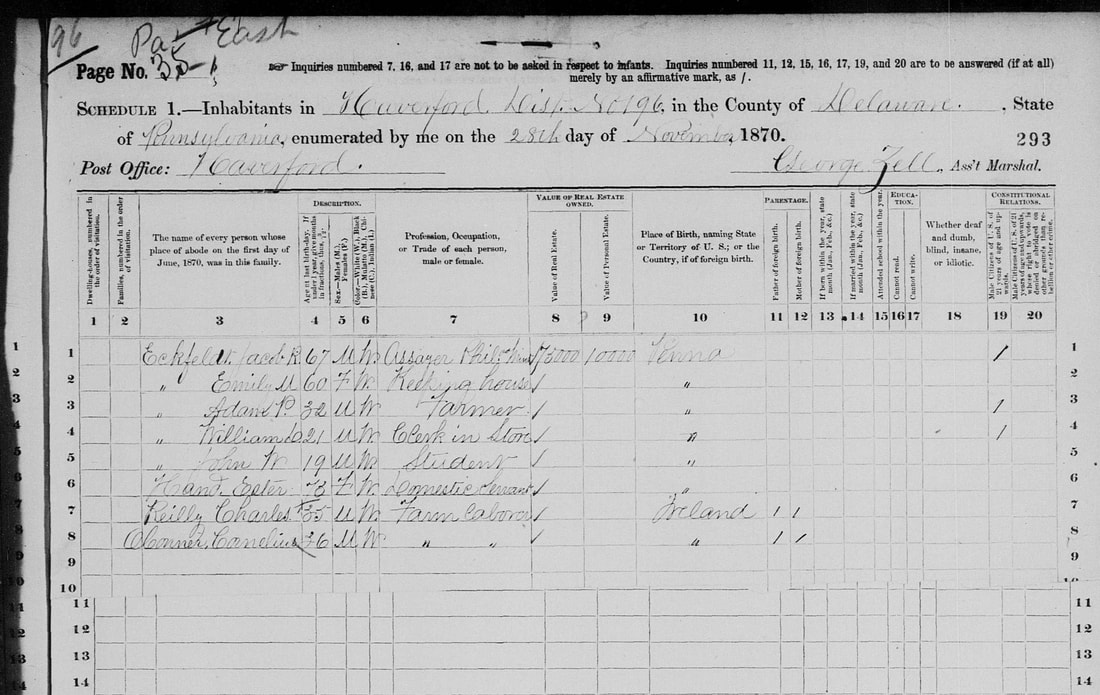 96
Pa East
Page No. 35
Inquiries numbered 7, 16, and 17 are not to be asked in respect to infants. Inquiries numbered 11, 12, 15, 16, 17, 19, and 20 are to be answered (if at all)
merely by an affirmative mark, as /.
Schedule 1.—Inhabitants in Haverford Dist. No 196, in the County of Delaware, State
of Pennsylvania, enumerated by me on the 28th day of November, 1870.
293
Post Office: Haverford.
George Zell, Ass't Marshal.
Dwelling-houses, numbered in the order of visitation.
Families, numbered in the order of visitation.
The name of every person whose place of abode on the first day of June, 1870, was in this family.
Description.
Age at last birth-day. If under 1 year, give months in fractions, thus, 3/12.
Sex.—Males (M.), Females (F.)
Color.—White (W.), Black (B.), Mulatto (M.), Chinese (C.), Indian (I.)
Profession, Occupation, or Trade of each person, male or female.
Value of Real Estate Owned.
Value of Real Estate.
Value of Personal Estate.
Place of Birth, naming State or Territory of U. S.; or the Country, if of foreign birth.
Parentage.
Father of foreign birth.
Mother of foreign birth.
If born within the year, state month (Jan., Feb., &c.)
If married within the year, state month (Jan., Feb., &c.)
Attended school within the year.
Education.
Cannot read.
Cannot write.
Whether deaf and dumb, blind, insane, or idiotic.
Constitutional Relations.
Male Citizens of U. S. of 21 years of age and upwards.
Male Citizens of U. S. of 21 years of age and upwards, where right to vote is denied or abridged on other grounds than rebellion or other crime.
1 2 3 4 5 6 7 8 9 10 11 12 13 14 15 16 17 18 19 20
1 1 Eckfeldt Jacob R. 67 M W Assayer Phil 75000 10000 Penna / 1
2 2 " Emily U 60 F W Keeping house / " 2
3 3 " Adam P. 32 M W Farmer / " / 3
4 4 " William 21 M W Clerk in Store / " / 4
5 5 " John W 19 M W Student " 5
6 6 Hand, Ester 73 F W Domestic Servant / " 6
7 7 Reilly Charles 35 M W Farm Laborer / Ireland / / 7
8 8 O Conner, Cornelius 36 M W " " / " / / 8
9 9 9
10 10
11 11 11
12 12 12
13 13 13
14 14 14